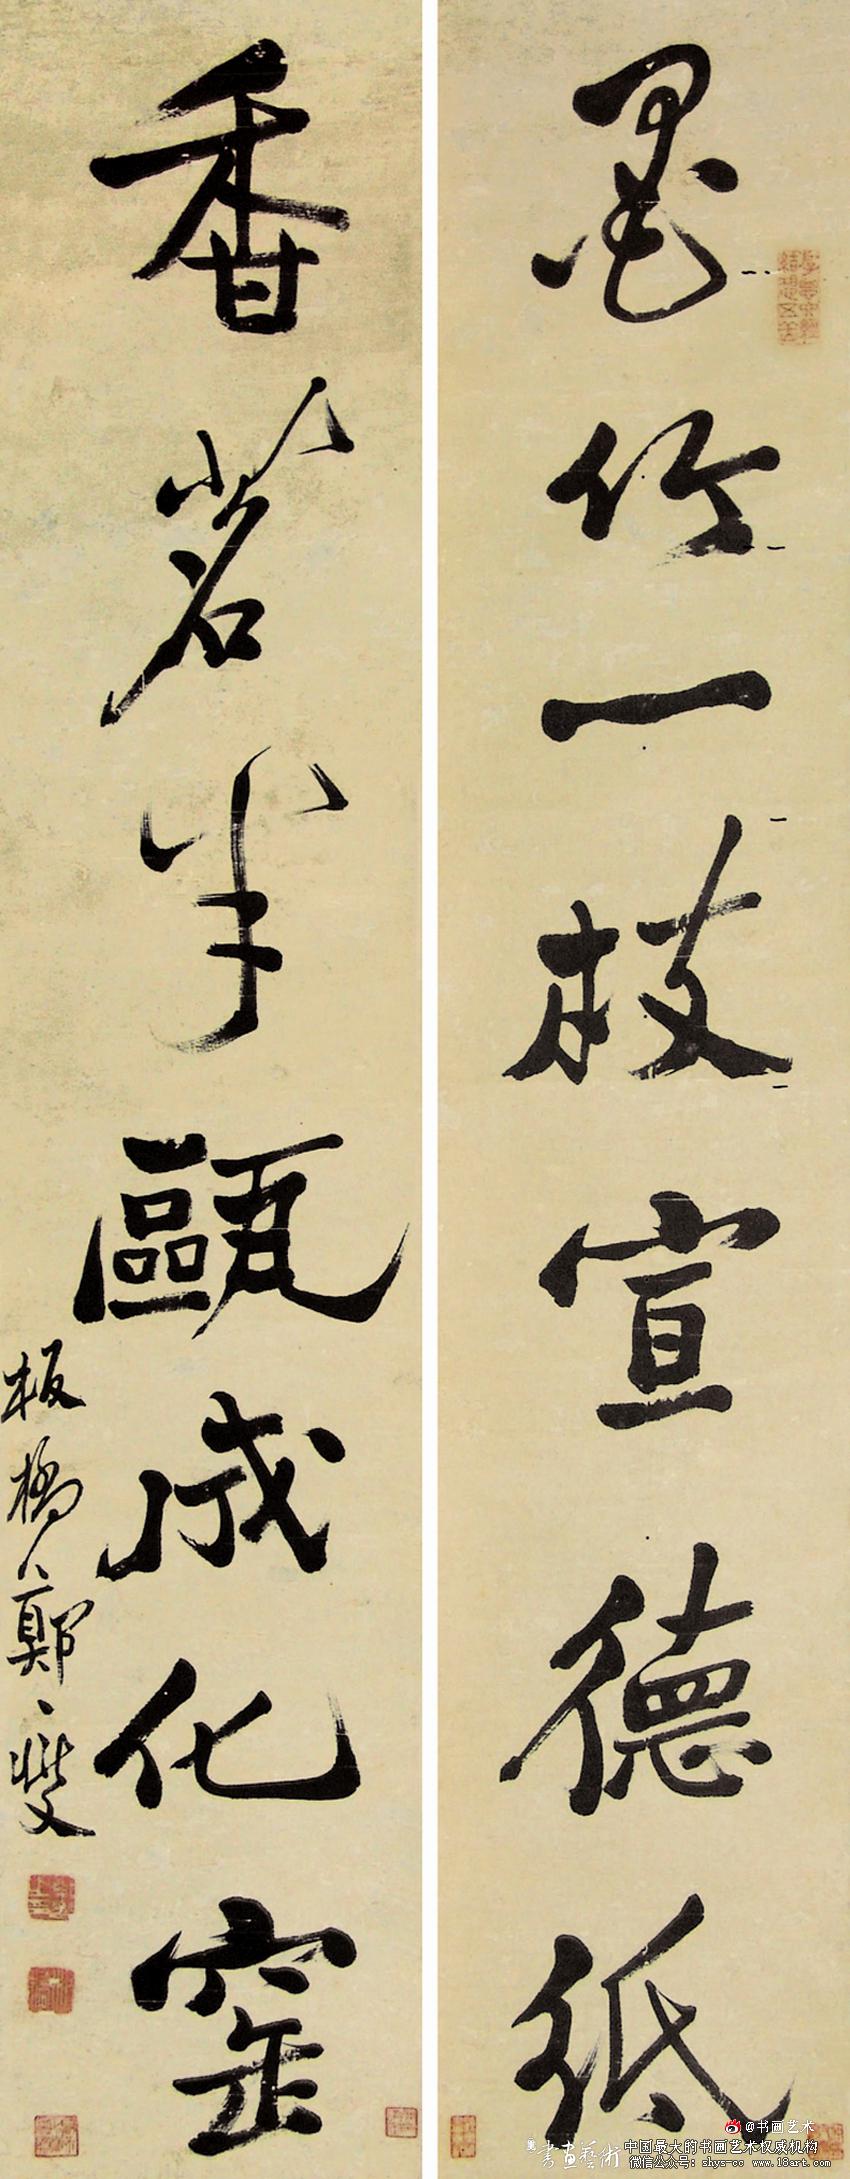 墨竹一枝宣德紙
香茗半甌成化窑
板橋鄭燮
@书画艺术
書畫藝術
中国最大的书画艺术权威机构
微信公众号: shys-cc www.18art.com